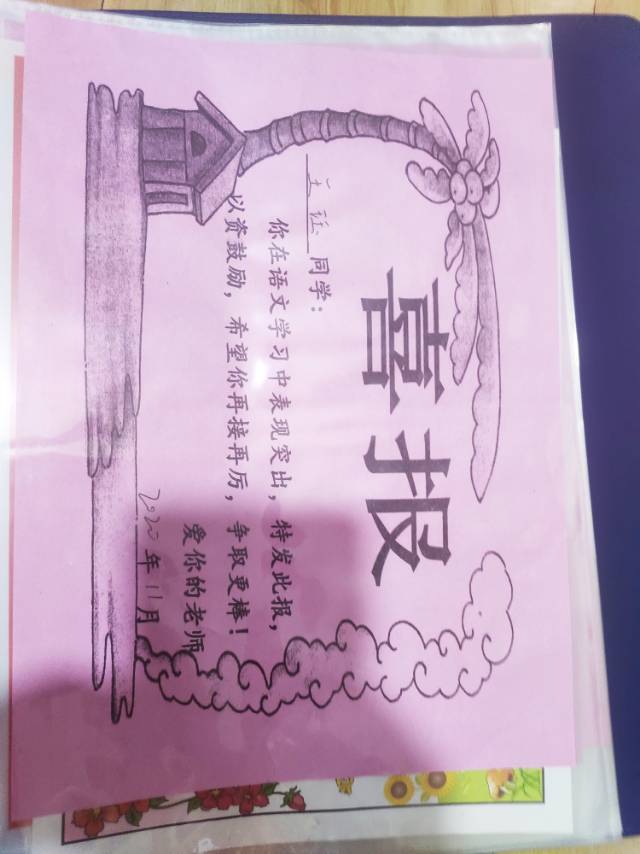 喜报
王征同学：
你在语文学习中表现突出，特发此报，
以资鼓励，希望你再接再厉，争取更棒！
爱你的老师
2020年11月